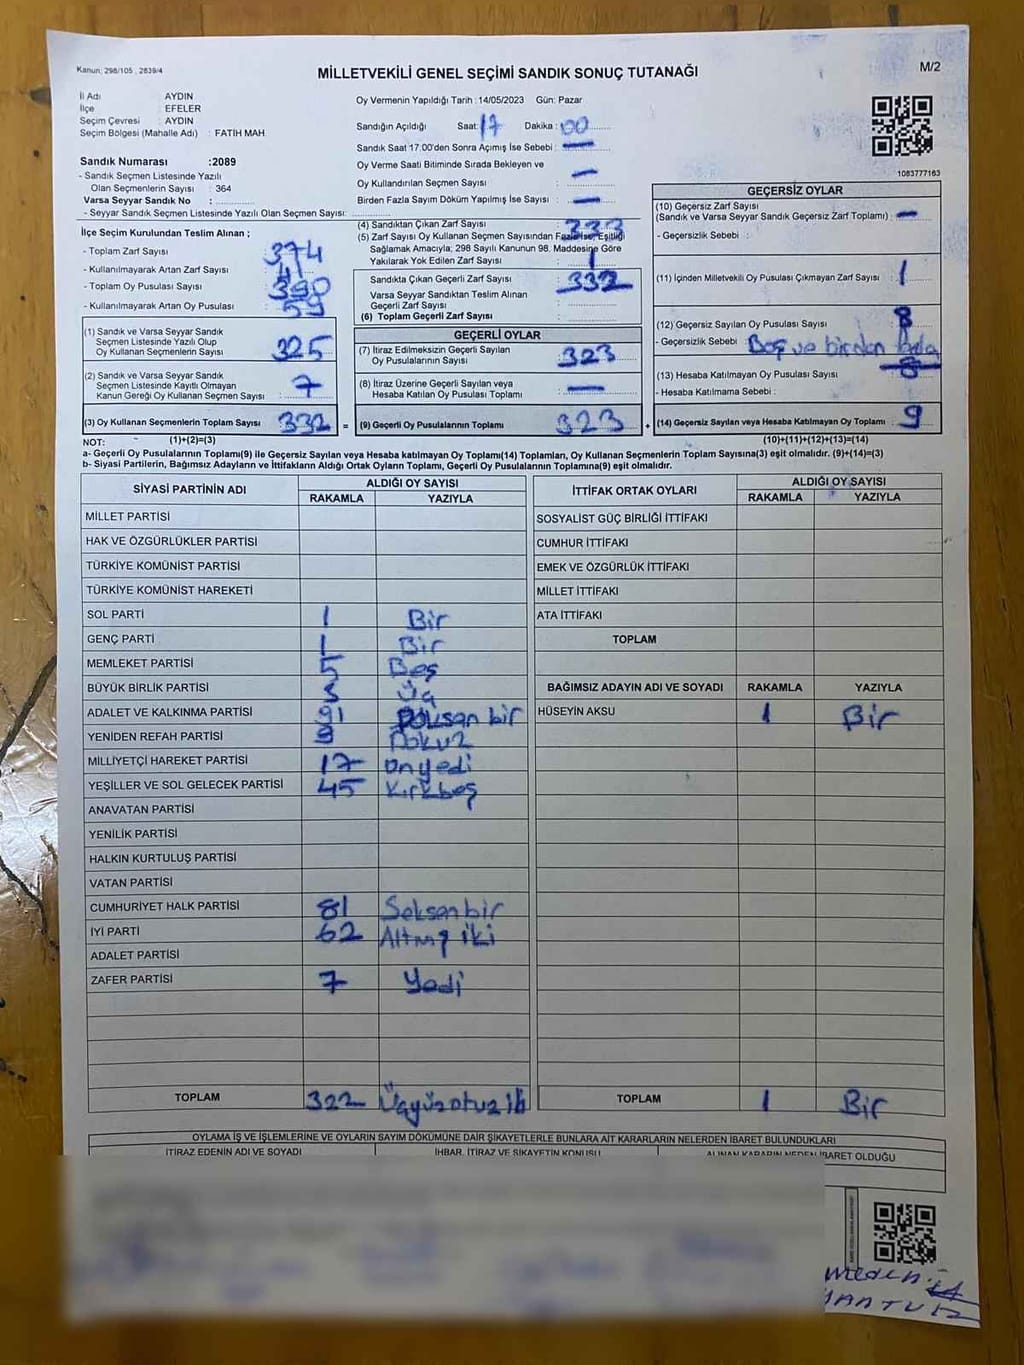 Kanun: 298/105 , 2839/4
MİLLETVEKİLİ GENEL SEÇİMİ SANDIK SONUÇ TUTANAĞI
M/2
İl Adı AYDIN
İlçe EFELER
Seçim Çevresi : AYDIN
Seçim Bölgesi (Mahalle Adı) : FATİH MAH.
Oy Vermenin Yapıldığı Tarih : 14/05/2023 Gün: Pazar
Sandığın Açıldığı Saat: 17 Dakika : 00
Sandık Saat 17:00'den Sonra Açımış İse Sebebi : —
Oy Verme Saati Bitiminde Sırada Bekleyen ve
Oy Kullandırılan Seçmen Sayısı : —
Birden Fazla Sayım Döküm Yapılmış İse Sayısı : —
Sandık Numarası :2089
- Sandık Seçmen Listesinde Yazılı
Olan Seçmenlerin Sayısı : 364
Varsa Seyyar Sandık No :
- Seyyar Sandık Seçmen Listesinde Yazılı Olan Seçmen Sayısı:
1083777163
İlçe Seçim Kurulundan Teslim Alınan ;
- Toplam Zarf Sayısı : 374
- Kullanılmayarak Artan Zarf Sayısı : 41
- Toplam Oy Pusulası Sayısı : 390
- Kullanılmayarak Artan Oy Pusulası : 59
(1) Sandık ve Varsa Seyyar Sandık
Seçmen Listesinde Yazılı Olup
Oy Kullanan Seçmenlerin Sayısı : 325
(2) Sandık ve Varsa Seyyar Sandık
Seçmen Listesinde Kayıtlı Olmayan
Kanun Gereği Oy Kullanan Seçmen Sayısı : 7
(3) Oy Kullanan Seçmenlerin Toplam Sayısı : 332 =
(4) Sandıktan Çıkan Zarf Sayısı : 333
(5) Zarf Sayısı Oy Kullanan Seçmen Sayısından Fazla İse, Eşitliği
Sağlamak Amacıyla; 298 Sayılı Kanunun 98. Maddesine Göre
Yakılarak Yok Edilen Zarf Sayısı : 1
Sandıkta Çıkan Geçerli Zarf Sayısı : 332
Varsa Seyyar Sandıktan Teslim Alınan
Geçerli Zarf Sayısı :
(6) Toplam Geçerli Zarf Sayısı :
GEÇERLİ OYLAR
(7) İtiraz Edilmeksizin Geçerli Sayılan
Oy Pusulalarının Sayısı : 323
(8) İtiraz Üzerine Geçerli Sayılan veya
Hesaba Katılan Oy Pusulası Toplamı : —
(9) Geçerli Oy Pusulalarının Toplamı : 323 +
GEÇERSİZ OYLAR
(10) Geçersiz Zarf Sayısı
(Sandık ve Varsa Seyyar Sandık Geçersiz Zarf Toplamı) : —
- Geçersizlik Sebebi :
(11) İçinden Milletvekili Oy Pusulası Çıkmayan Zarf Sayısı : 1
(12) Geçersiz Sayılan Oy Pusulası Sayısı : 8
- Geçersizlik Sebebi : Boş ve birden fazla
(13) Hesaba Katılmayan Oy Pusulası Sayısı :
- Hesaba Katılmama Sebebi :
(14) Geçersiz Sayılan veya Hesaba Katılmayan Oy Toplamı : 9
NOT: (1)+(2)=(3) (10)+(11)+(12)+(13)=(14)
a- Geçerli Oy Pusulalarının Toplamı(9) ile Geçersiz Sayılan veya Hesaba katılmayan Oy Toplamı(14) Toplamları, Oy Kullanan Seçmenlerin Toplam Sayısına(3) eşit olmalıdır. (9)+(14)=(3)
b- Siyasi Partilerin, Bağımsız Adayların ve İttifakların Aldığı Ortak Oyların Toplamı, Geçerli Oy Pusulalarının Toplamına(9) eşit olmalıdır.
SİYASİ PARTİNİN ADI ALDIĞI OY SAYISI
RAKAMLA YAZIYLA
MİLLET PARTİSİ
HAK VE ÖZGÜRLÜKLER PARTİSİ
TÜRKİYE KOMÜNİST PARTİSİ
TÜRKİYE KOMÜNİST HAREKETİ
SOL PARTİ 1 Bir
GENÇ PARTİ 1 Bir
MEMLEKET PARTİSİ 5 Beş
BÜYÜK BİRLİK PARTİSİ 3 Üç
ADALET VE KALKINMA PARTİSİ 91 Doksan bir
YENİDEN REFAH PARTİSİ 9 Dokuz
MİLLİYETÇİ HAREKET PARTİSİ 17 Onyedi
YEŞİLLER VE SOL GELECEK PARTİSİ 45 Kırkbeş
ANAVATAN PARTİSİ
YENİLİK PARTİSİ
HALKIN KURTULUŞ PARTİSİ
VATAN PARTİSİ
CUMHURİYET HALK PARTİSİ 81 Seksenbir
İYİ PARTİ 62 Altmış iki
ADALET PARTİSİ
ZAFER PARTİSİ 7 Yedi
TOPLAM 322 Üçyüzotuz iki
İTTİFAK ORTAK OYLARI ALDIĞI OY SAYISI
RAKAMLA YAZIYLA
SOSYALİST GÜÇ BİRLİĞİ İTTİFAKI
CUMHUR İTTİFAKI
EMEK VE ÖZGÜRLÜK İTTİFAKI
MİLLET İTTİFAKI
ATA İTTİFAKI
TOPLAM
BAĞIMSIZ ADAYIN ADI VE SOYADI RAKAMLA YAZIYLA
HÜSEYİN AKSU 1 Bir
TOPLAM 1 Bir
OYLAMA İŞ VE İŞLEMLERİNE VE OYLARIN SAYIM DÖKÜMÜNE DAİR ŞİKAYETLERLE BUNLARA AİT KARARLARIN NELERDEN İBARET BULUNDUKLARI
İTİRAZ EDENİN ADI VE SOYADI İHBAR, İTİRAZ VE ŞİKAYETİN KONUSU ALINAN KARARIN NEDEN İBARET OLDUĞU